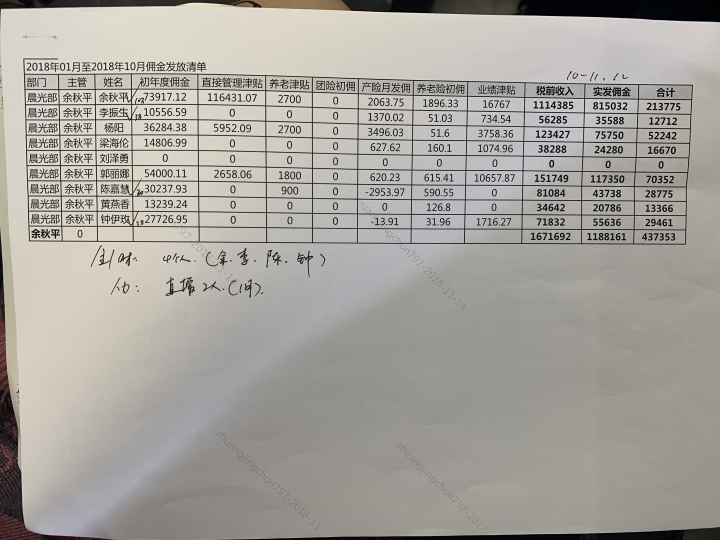 2018年01月至2018年10月佣金发放清单
10-11. 12
部门 主管 姓名 初年度佣金 直接管理津贴 养老津贴 团险初佣 产险月发佣 养老险初佣 业绩津贴 税前收入 实发佣金 合计
晨光部 余秋平 余秋平 73917.12 116431.07 2700 0 2063.75 1896.33 16767 1114385 815032 213775
晨光部 余秋平 李振生 10556.59 0 0 0 1370.02 51.03 734.54 56285 35588 12712
晨光部 余秋平 杨阳 36284.38 5952.09 2700 0 3496.03 51.6 3758.36 123427 75750 52242
晨光部 余秋平 梁海伦 14806.99 0 0 0 627.62 160.1 1074.96 38288 24280 16670
晨光部 余秋平 刘泽勇 0 0 0 0 0 0 0 0 0 0
晨光部 余秋平 郭丽娜 54000.11 2658.06 1800 0 620.23 615.41 10657.87 151749 117350 70352
晨光部 余秋平 陈嘉慧 30237.93 0 900 0 -2953.97 590.55 0 81084 43738 28775
晨光部 余秋平 黄燕香 13239.24 0 0 0 0 126.8 0 34642 20786 13366
晨光部 余秋平 钟伊玫 27726.95 0 0 0 -13.91 31.96 1716.27 71832 55636 29461
余秋平 0 1671692 1188161 437353
4个人.(余.李.陈.钟)
直接2人.
zhuangjingchun797-2018-11-14
zhuangjingchun797-2018-11
zhuangjingchun797-201